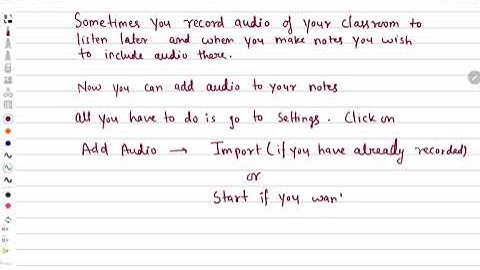 Sometimes you record audio of your classroom to
listen later and when you make notes you wish
to include audio there.
Now you can add audio to your notes
all you have to do is go to Settings. Click on
Add Audio → Import (if you have already recorded)
or
Start if you wan